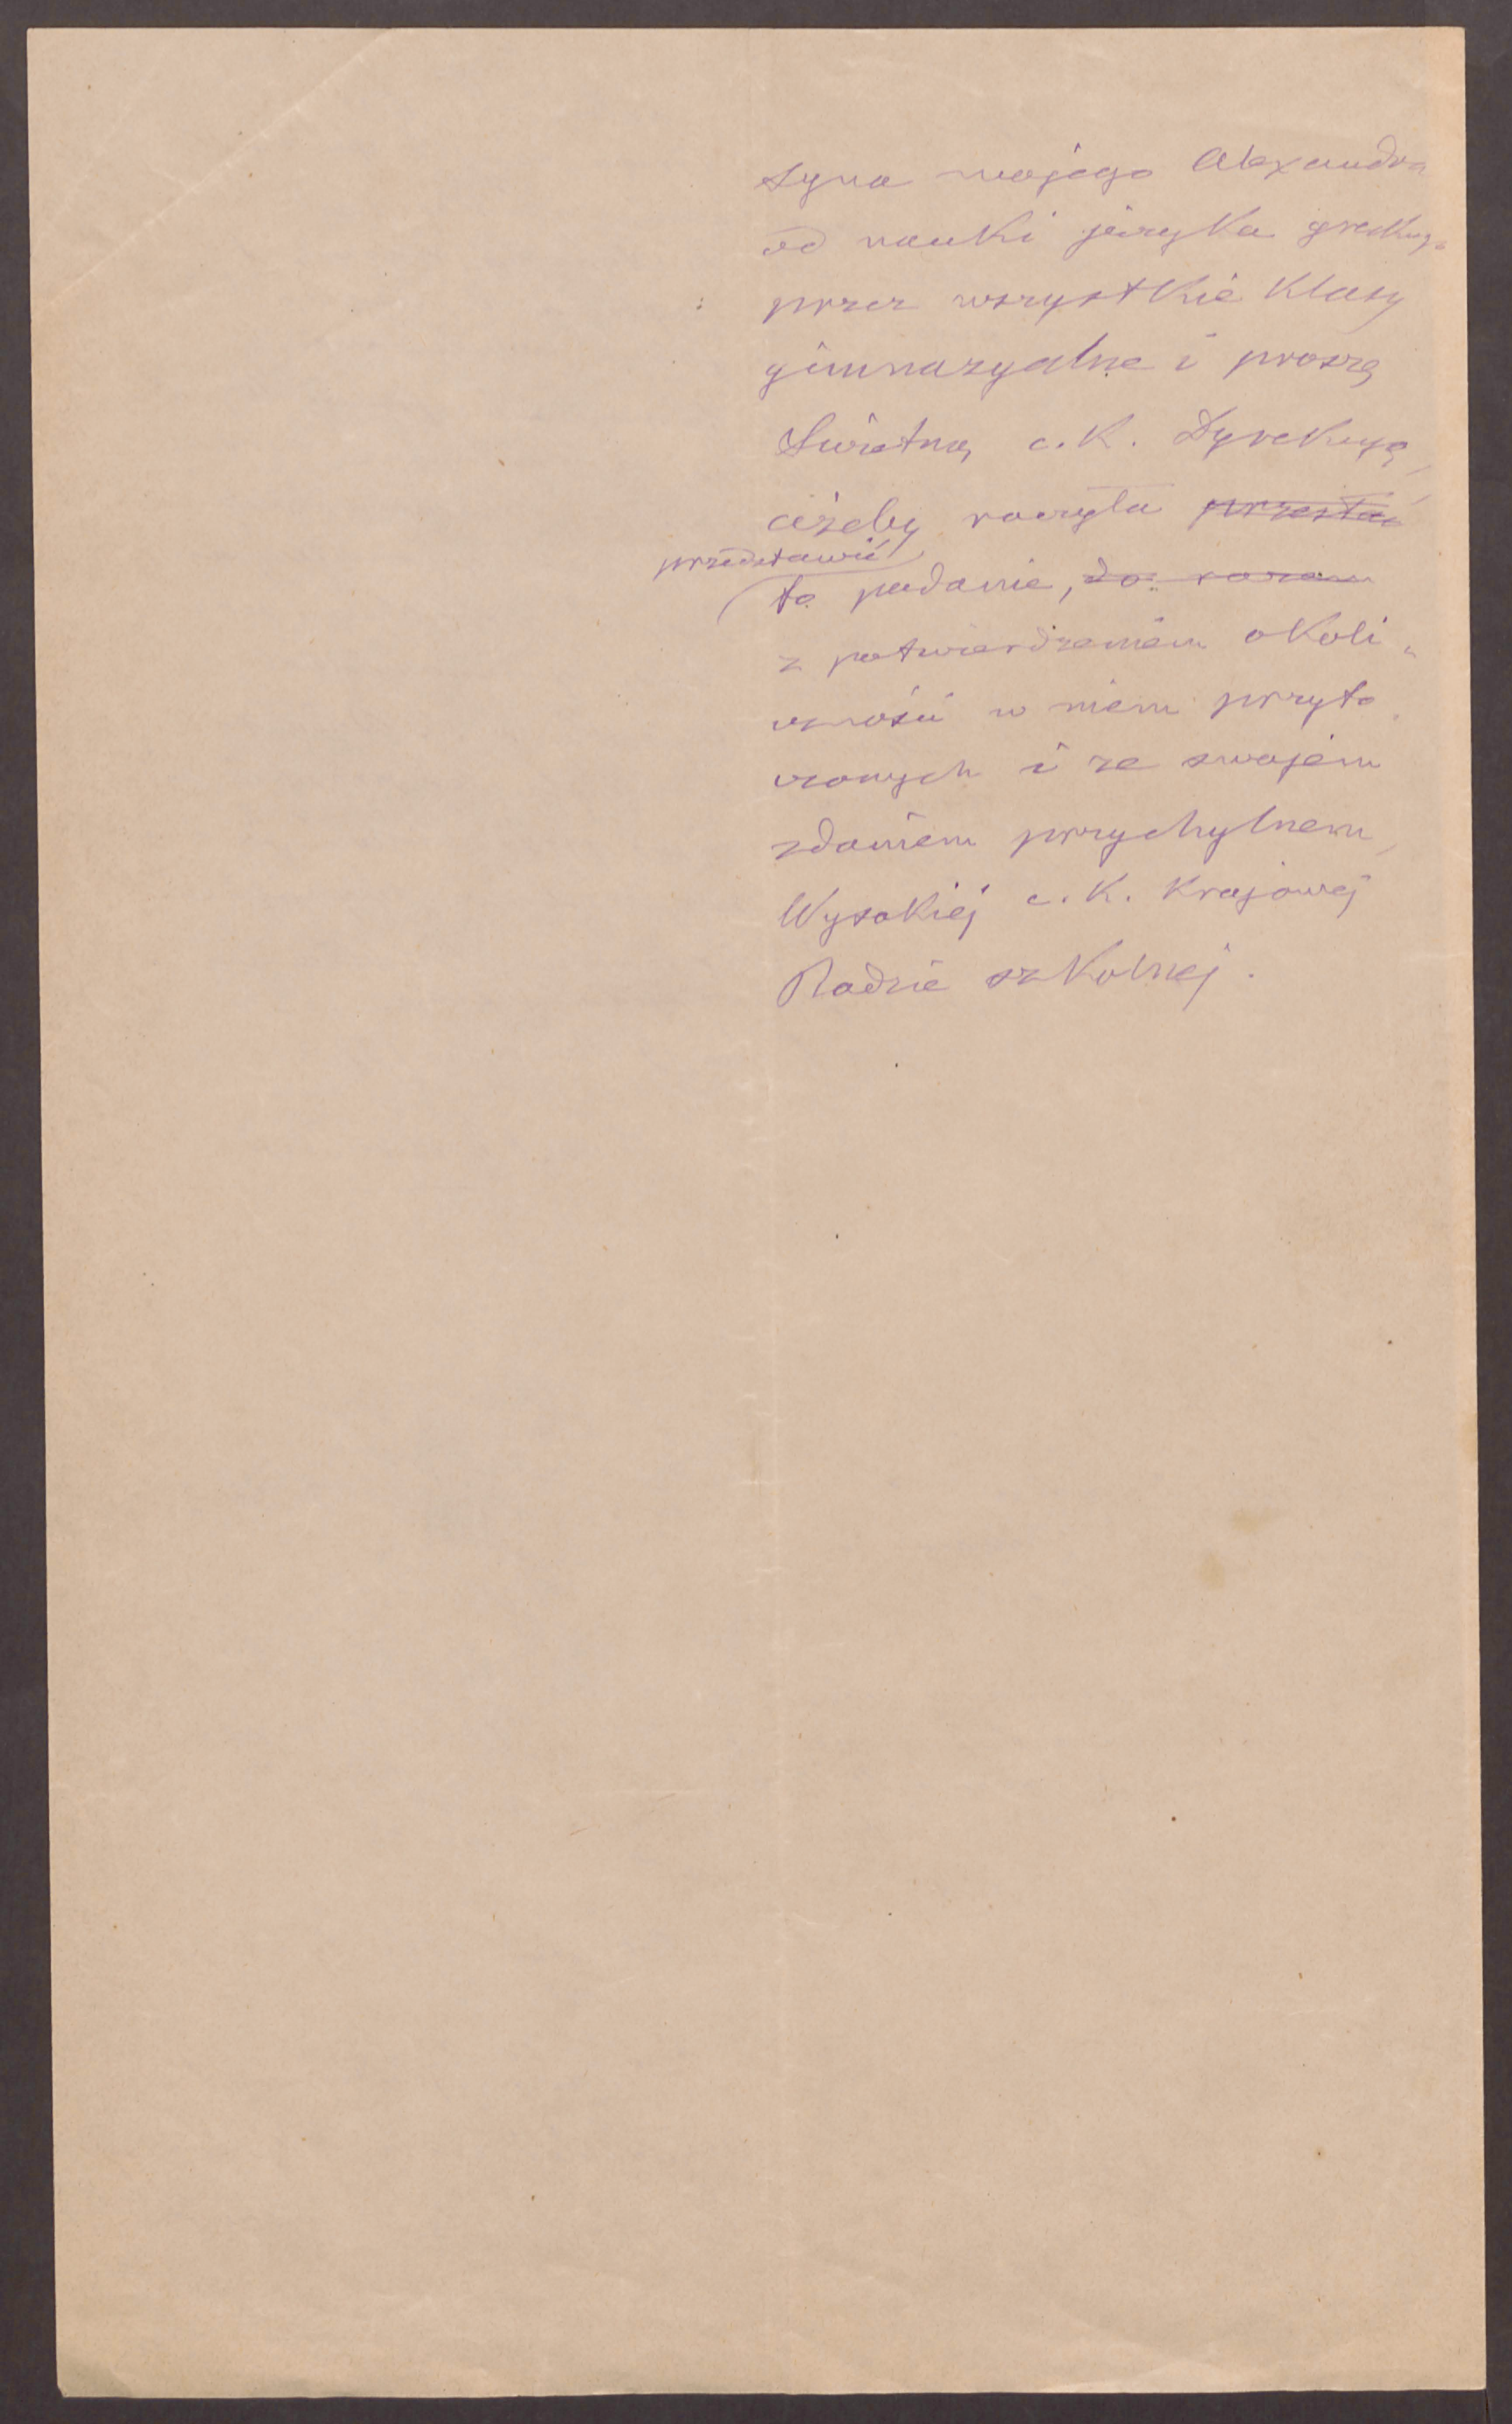 syna mojego Alexandra
od nauki języka greckiego
przez wszystkie klasy
gimnazyalne i proszę
Świetną c. k. Dyrekcyę,
ażeby raczyła przesłać
przedstawić
to podanie, do
z potwierdzeniem okoli„
czności w niem przyto„
czonych i ze swojem
zdaniem przychylnem,
Wysokiej c. k. Krajowej
Radzie szkolnej.